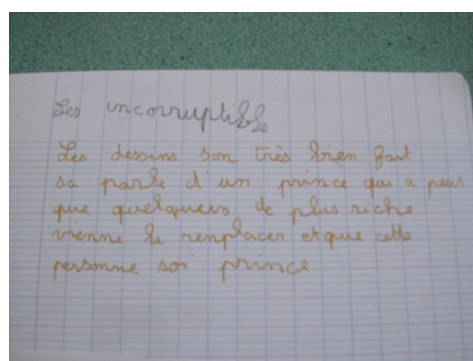 Les incorruptible
Les dessins son très bien fait
sa parle d'un prince qui a peur
que quelqueun de plus riche
vienne le remplacer et que cette
personne soi prince